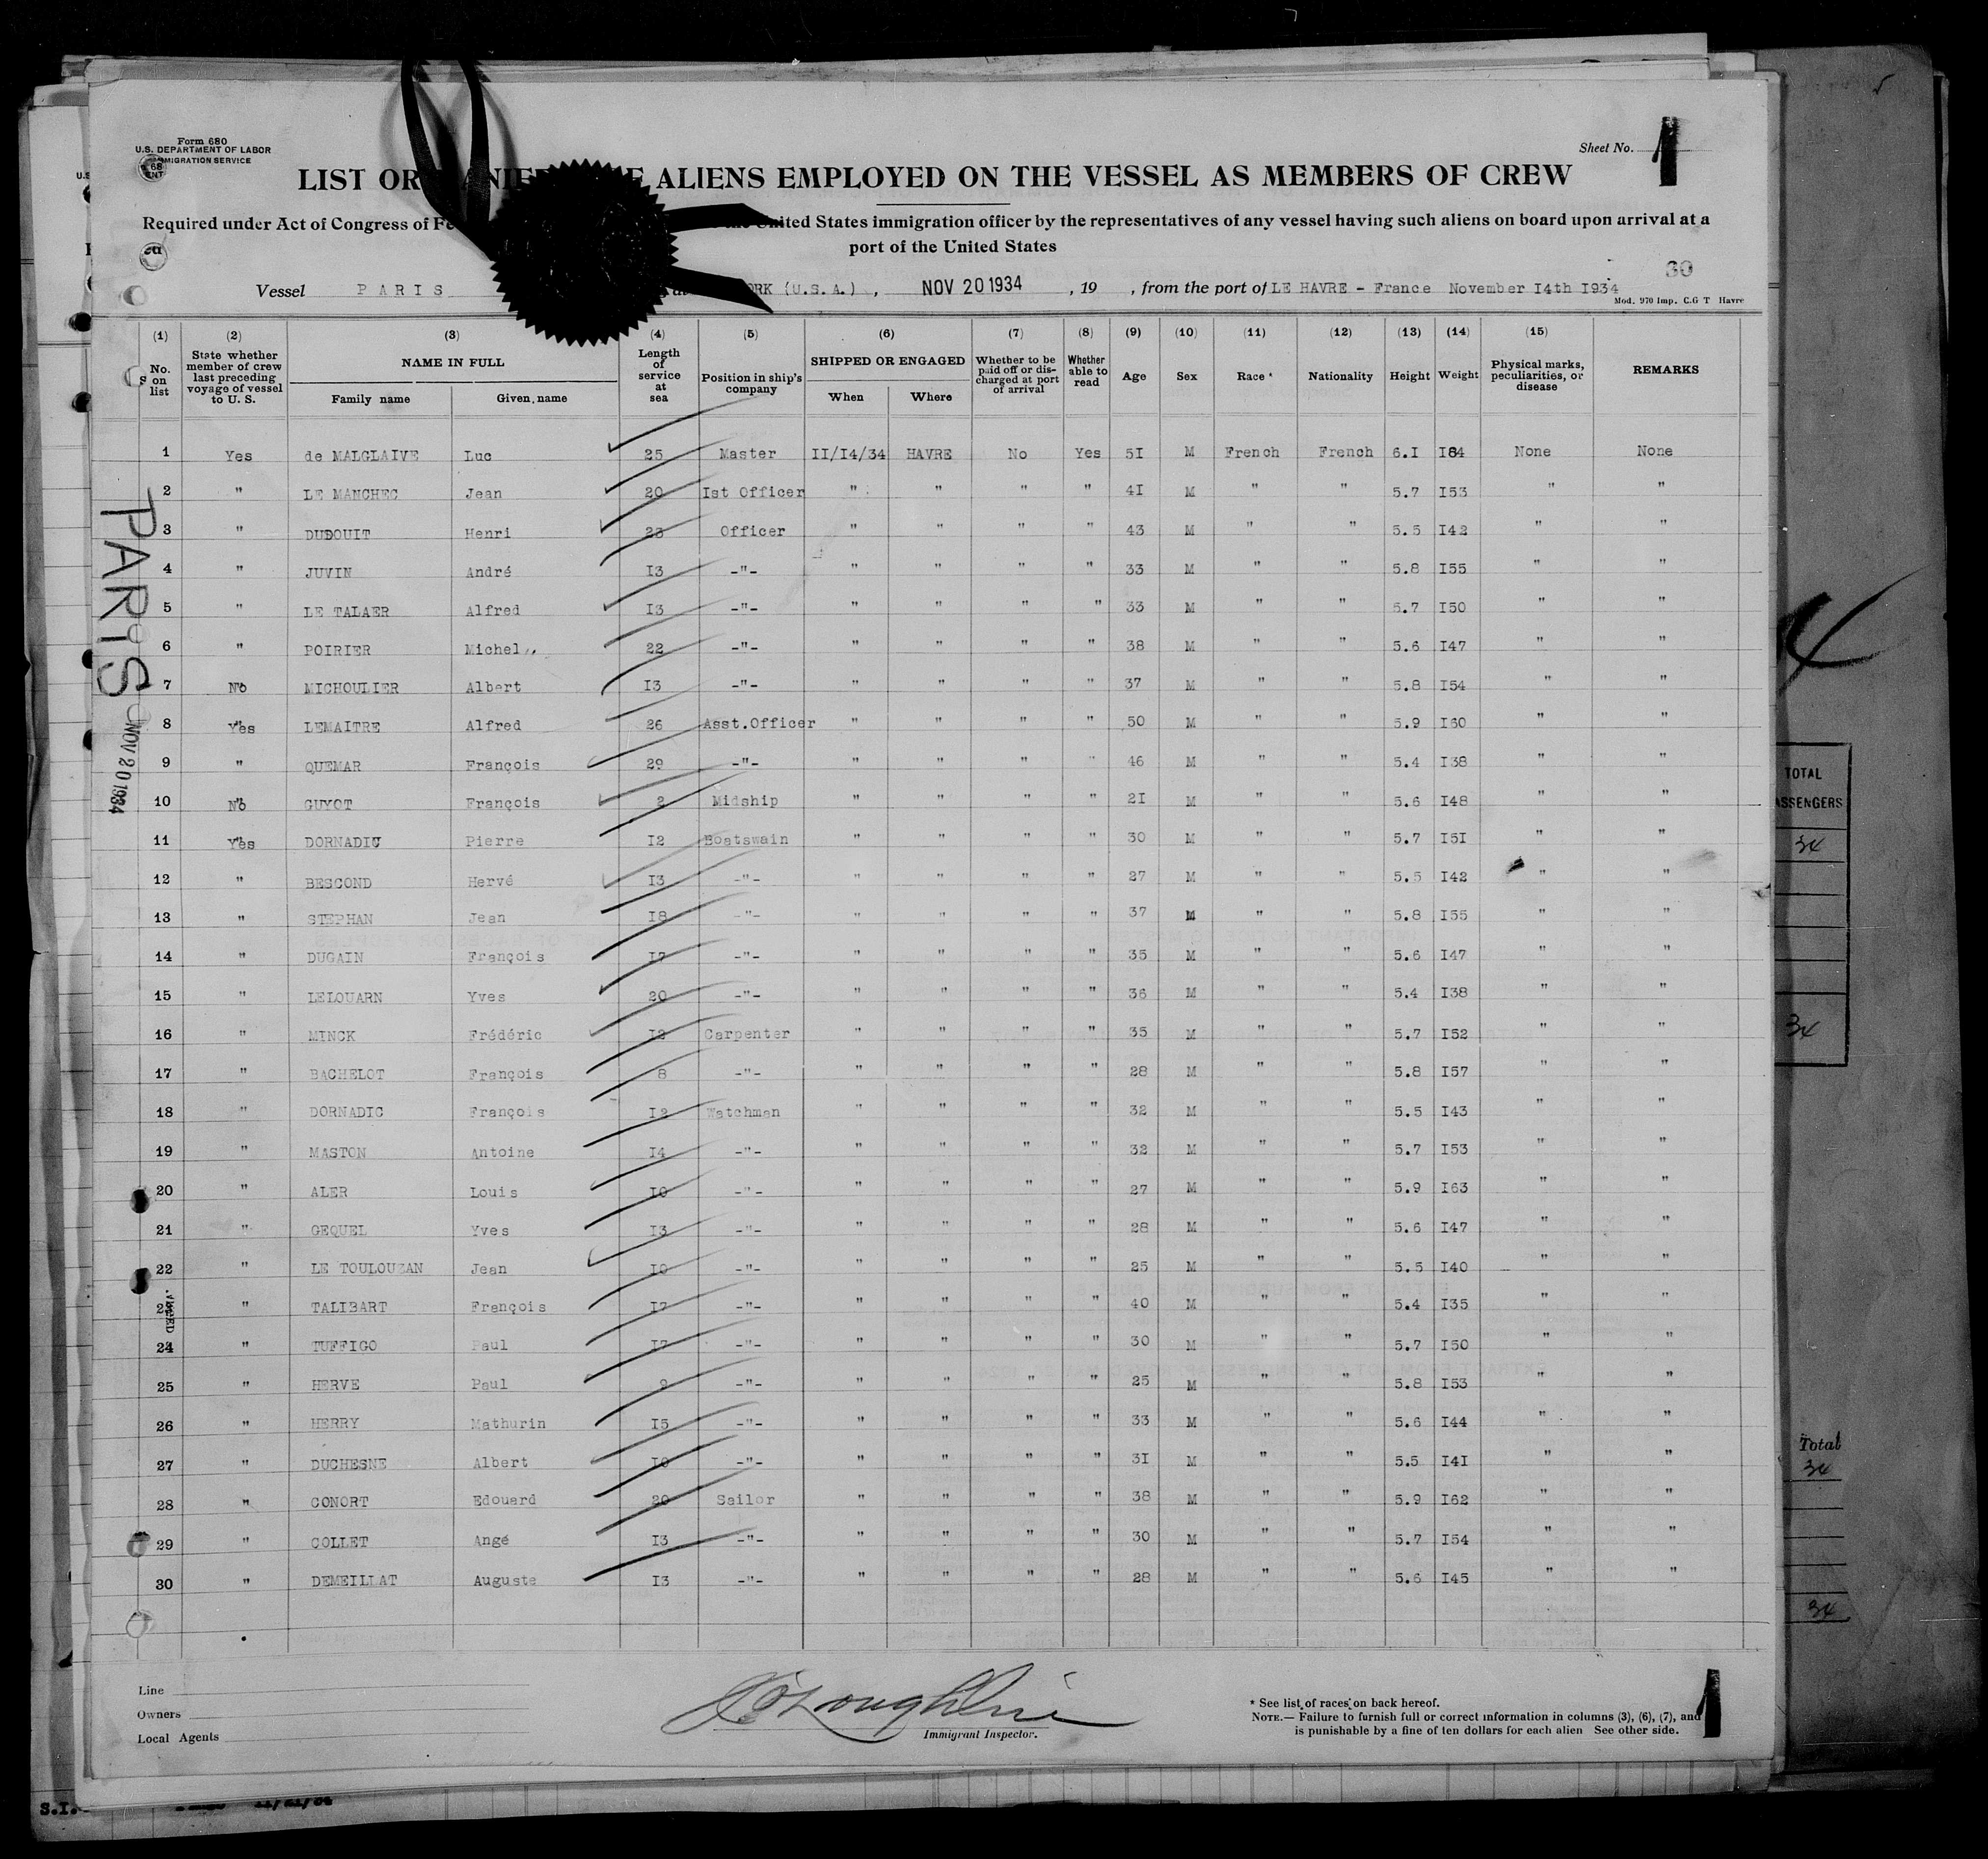 Form 680
U.S. DEPARTMENT OF LABOR
IMMIGRATION SERVICE
Sheet No. 1
LIST OR ALIENS EMPLOYED ON THE VESSEL AS MEMBERS OF CREW
Required under Act of Congress of United States immigration officer by the representatives of any vessel having such aliens on board upon arrival at a
port of the United States
30
Vessel PARIS ORK (U.S.A.) , NOV 20 1934 , 19 , from the port of LE HAVRE - France November I4th I934
Mod. 970 Imp. C.G T Havre
(1) (2) (3) (4) (5) (6) (7) (8) (9) (10) (11) (12) (13) (14) (15)
No. on list State whether member of crew last preceding voyage of vessel to U. S. NAME IN FULL Family name Given name Length of service at sea Position in ship's company SHIPPED OR ENGAGED When Where Whether to be paid off or discharged at port of arrival Whether able to read Age Sex Race * Nationality Height Weight Physical marks, peculiarities, or disease REMARKS
1 Yes de MALGLAIVE Luc 25 Master II/I4/34 HAVRE No Yes 5I M French French 6.I I84 None None
2 " LE MANCHEC Jean 20 Ist Officer " " " " 4I M " " 5.7 I53 " "
3 " DUDOUIT Henri 23 Officer " " " " 43 M " " 5.5 I42 " "
4 " JUVIN André I3 -"- " " " " 33 M " " 5.8 I55 " "
5 " LE TALAER Alfred I3 -"- " " " " 33 M " " 5.7 I50 " "
6 " POIRIER Michel 22 -"- " " " " 38 M " " 5.6 I47 " "
7 No MICHOULIER Albert I3 -"- " " " " 37 M " " 5.8 I54 " "
8 Yes LEMAITRE Alfred 26 Asst.Officer " " " " 50 M " " 5.9 I60 " "
9 " QUEMAR François 29 -"- " " " " 46 M " " 5.4 I38 " "
10 No GUYOT François 2 Midship " " " " 2I M " " 5.6 I48 " "
11 Yes DORNADIC Pierre I2 Boatswain " " " " 30 M " " 5.7 I5I " "
12 " BESCOND Hervé I3 -"- " " " " 27 M " " 5.5 I42 " "
13 " STEPHAN Jean I8 -"- " " " " 37 M " " 5.8 I55 " "
14 " DUGAIN François I7 -"- " " " " 35 M " " 5.6 I47 " "
15 " LELOUARN Yves 20 -"- " " " " 36 M " " 5.4 I38 " "
16 " MINCK Frédéric I2 Carpenter " " " " 35 M " " 5.7 I52 " "
17 " BACHELOT François 8 -"- " " " " 28 M " " 5.8 I57 " "
18 " DORNADIC François I2 Watchman " " " " 32 M " " 5.5 I43 " "
19 " MASTON Antoine I4 -"- " " " " 32 M " " 5.7 I53 " "
20 " ALER Louis I0 -"- " " " " 27 M " " 5.9 I63 " "
21 " GEQUEL Yves I3 -"- " " " " 28 M " " 5.6 I47 " "
22 " LE TOULOUZAN Jean I0 -"- " " " " 25 M " " 5.5 I40 " "
23 " TALIBART François I7 -"- " " " " 40 M " " 5.4 I35 " "
24 " TUFFIGO Paul I7 -"- " " " " 30 M " " 5.7 I50 " "
25 " HERVE Paul 9 -"- " " " " 25 M " " 5.8 I53 " "
26 " HERRY Mathurin I5 -"- " " " " 33 M " " 5.6 I44 " "
27 " DUCHESNE Albert I0 -"- " " " " 3I M " " 5.5 I4I " "
28 " CONORT Edouard 20 Sailor " " " " 38 M " " 5.9 I62 " "
29 " COLLET Angé I3 -"- " " " " 30 M " " 5.7 I54 " "
30 " DEMEILLAT Auguste I3 -"- " " " " 28 M " " 5.6 I45 " "
PARIS
NOV 20 1934
Line
Owners
Local Agents
Immigrant Inspector.
* See list of races on back hereof.
NOTE.— Failure to furnish full or correct information in columns (3), (6), (7), and
is punishable by a fine of ten dollars for each alien See other side.
1
TOTAL
34
34
Total
34
34
S.I.